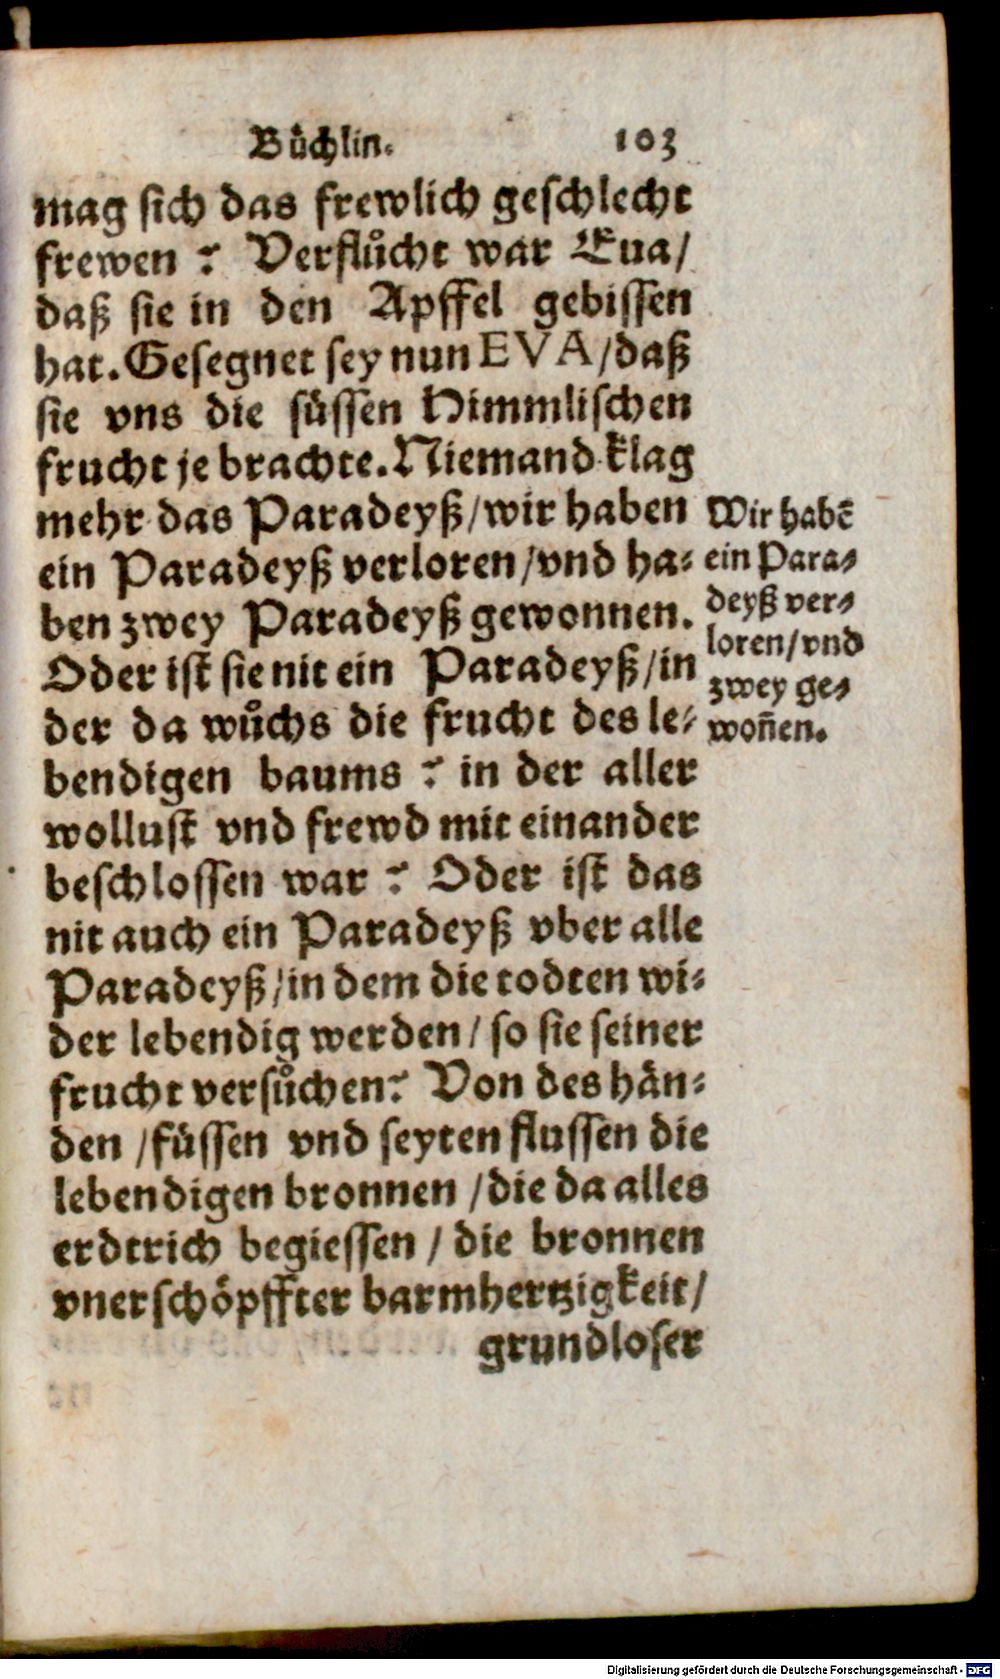 Bůchlin. 103
mag sich das frewlich geschlecht
frewen ? Verflůcht war Eua/
daß sie in den Apffel gebissen
hat. Gesegnet sey nun EVA/daß
sie vns die süssen Himmlischen
frucht je brachte. Niemand klag
mehr das Paradeyß/wir haben
ein Paradeyß verloren/vnd ha-
ben zwey Paradeyß gewonnen.
Oder ist sie nit ein Paradeyß/in
der da wůchs die frucht des le-
bendigen baums ? in der aller
wollust vnd frewd mit einander
beschlossen war ? Oder ist das
nit auch ein Paradeyß vber alle
Paradeyß/in dem die todten wi-
der lebendig werden/ so sie seiner
frucht versůchen? Von des hän-
den /füssen vnd seyten flussen die
lebendigen bronnen /die da alles
erdtrich begiessen / die bronnen
vnerschöpffter barmhertzigkeit/
grundloser
Wir habē
ein Para-
deyß ver-
loren/vnd
zwey ge-
woñen.
Digitalisierung gefördert durch die Deutsche Forschungsgemeinschaft - DFG